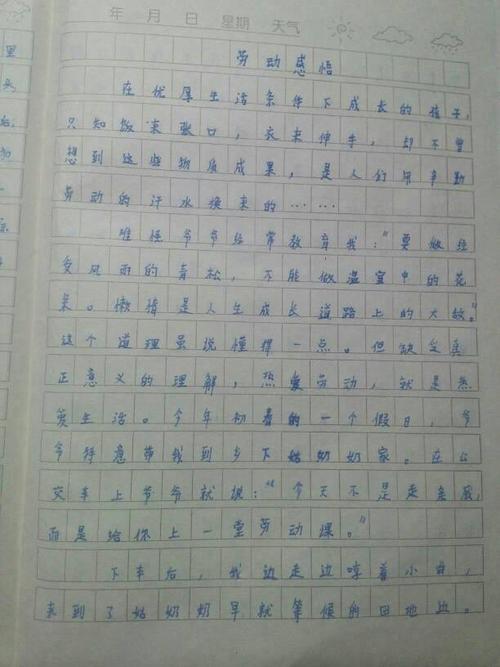 年 月 日 星期 天气
劳动感悟
在优厚生活条件下成长的孩子，
只知饭来张口，衣来伸手，却不曾
想到这些物质成果，是人们用辛勤
劳动的汗水换来的……
难怪爷爷经常教育我：“要做经
受风雨的青松，不能做温室中的花
朵。懒惰是人生成长道路上的大敌。”
这个道理虽说懂得一点。但缺乏真
正意义的理解，热爱劳动，就是热
爱生活。今年初春的一个假日，爷
爷特意带我到乡下姑奶奶家。在公
交车上爷爷就说：“今天不是走亲戚，
而是给你上一堂劳动课。”
下车后，我边走边哼着小曲，
来到了姑奶奶早就等候的田地边。
里
头